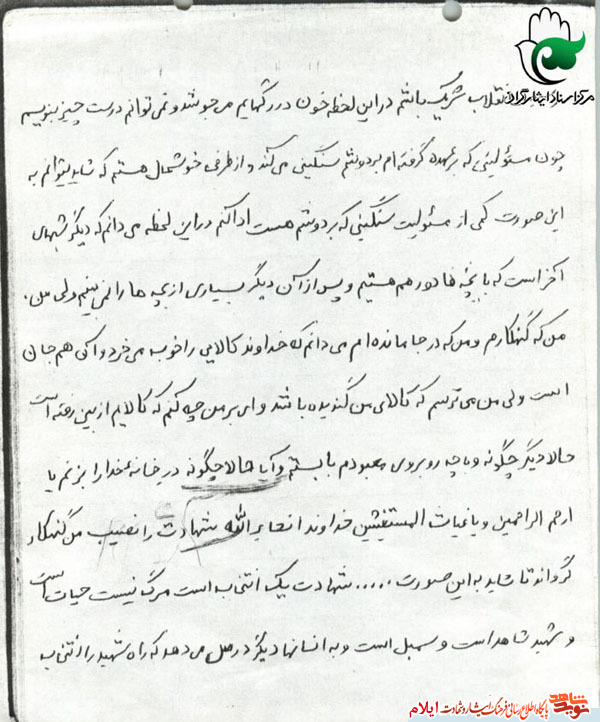 مرکز اسناد ایثارگران
انقلاب شریک باشم در این لحظه خون در رگهایم می جوشد و نمی توانم درست چیز بنویسم
چون مسئولیتی که بر عهده گرفته ام بر دوشم سنگینی می کند و از طرفی خوشحال هستم که شاید بتوانم به
این صورت کمی از مسئولیت سنگینی که بر دوشم هست ادا کنم در این لحظه می دانم که دیگر شبهای
آخر است که با بچه ها دور هم هستیم و پس از آن دیگر بسیاری از بچه ها را نمی بینم ولی من.
من که گنهکارم و من که در جا مانده ام می دانم که خداوند کالایی را خوب می خرد و آن هم جان
است ولی من می ترسم که کالای من گندیده باشد و ای بر من چه کنم که کالایم از بین رفته است
حالا دیگر چگونه و با چه رو بروی معبودم بایستم و آیا حالا چگونه در خانه خدا را بزنم یا
ارحم الراحمین و یا غیاث المستغیثین خداوند شهادت را نصیب من گنهکار
گرداند تا شاید به این صورت ..... شهادت یک انتخاب است مرگ نیست حیات است
و شهید شاهد است و سمبل است و به انسانها دیگر درس می دهد که راه شهید را انتخاب
نوید شاهد
پایگاه اطلاع رسانی فرهنگ ایثار و شهادت ایلام